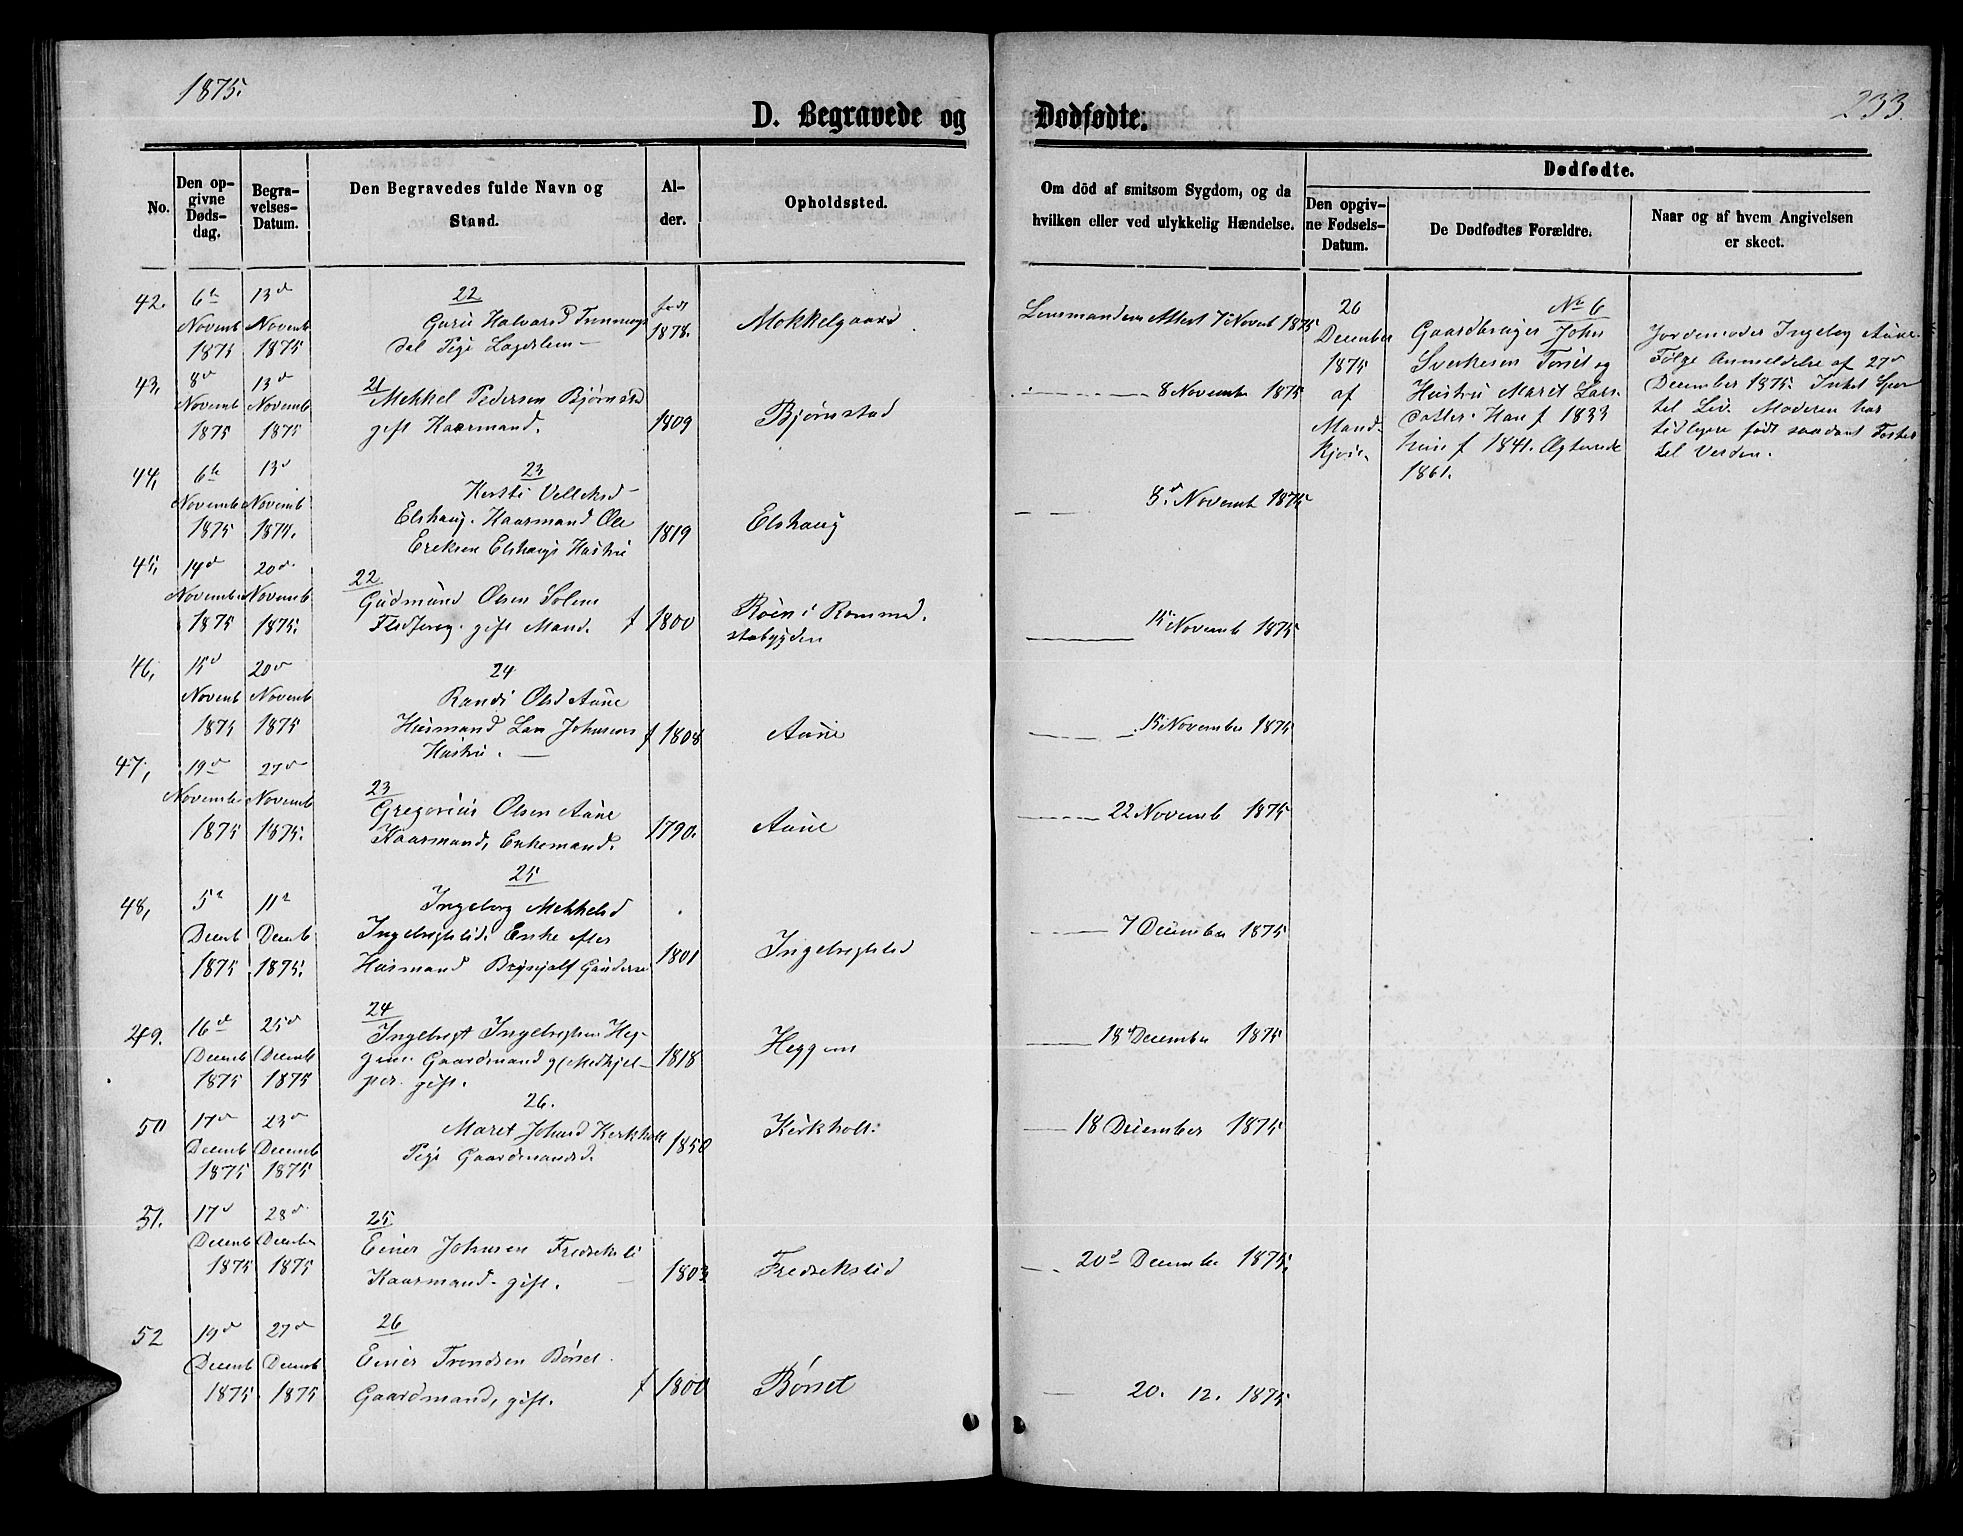 1875.
233.
D. Begravede og Dødfødte.
No.
Den op-
givne
Døds-
dag.
Begra-
velses-
Datum.
Den Begravedes fulde Navn og
Stand.
Al-
der.
Opholdssted.
Om död af smitsom Sygdom, og da
hvilken eller ved ulykkelig Hændelse.
Dødfødte.
Den opgiv-
ne Fødsels-
Datum.
De Dødfødtes Forældre.
Naar og af hvem Angivelsen
er skeet.
42.
6te
Novemb
1875
13d
Novemb
1875
22
Guru Halvorsd
Pige
født
1878.
Mokkelgaard
Lensmandens Attest 7 Novemb 1875
26
December
1875
af
Mand-
kjøn.
No 6
Gaardbruger John
Sverkesen Torset og
Hustru Maret Lars-
datter. Han f 1833
hun f 1841. Ægteviede
1861.
Jordemoder Ingebog Aune
Følge Anmeldelse af 27d
December 1875. Intet Spor
til Liv. Moderen har
tidligere født saadant Foster
til Verden.
43.
8d
Novemb
1875
13d
Novemb
1875
21
Mekkel Pedersen Bjørnstad
gift Kaarmand.
1809
Bjørnstad
8 Novembr 1875
44,
6te
Novemb
1875
13d
Novemb
1874.
23
Kersti
Elshaug. Kaarmand Ole
Eriksen Elshaugs Hustru
1819
Elshaug
8d Novemb 1875
45,
14d
November
1875
20d
Novemb
1875.
22
Gudmund Olsen Solem
gift Mand.
f 1800
Røen i Rommed.
stabygden
15 Novemb 1875
46,
15d
Novemb
1875
20d
Novemb
1875
24
Randi Olsd Aune
Husmand Lars Johnsens
Hustru.
f 1808
Aune
15 November 1875
47,
19d
November
1875
27d
Novemb
1875.
23
Gregorius Olsen Aune
Kaarmand, Enkemand.
1790.
Aune
22 Novemb 1875
48,
5te
Decemb
1875
11te
Decemb
1875.
25
Ingeborg Mekkelsd
Ingebrigtslid. Enke efter
Husmand Brynjolf
1801
Ingebrigtslid
7 December 1875
49.
16d
Decemb
1875
25d
Decemb
1875
24
Ingebrigt Ingebrigtsen Heg-
gem. Gaardmand og Medhjel-
per. gift.
1818
Heggem
18d December 1875
50
17d
Decemb
1875
23d
Decemb
1875
26.
Maret Johnsd Kirkholt
Pige Gaardmandsd.
1850
Kirkholt.
18 December 1875
51.
17d
Decemb
1875
28d
Decembr
1875
25
Einer Johnsen Fredriksli
Kaarmand. gift.
1803
Fredrikslid
20d December 1875.
52
19d
Decemb
1875.
27d
Decemb
1875
26
Einer Trondsen Børset.
Gaardmand, gift.
f 1800
Børset
20. 12. 1875